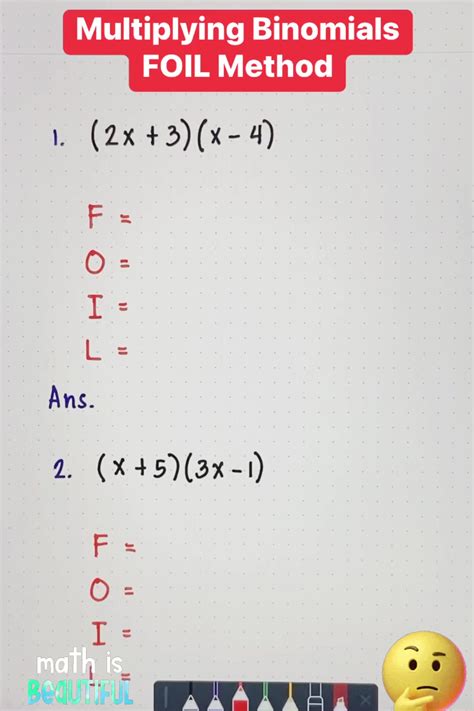 Multiplying Binomials
FOIL Method
1. (2x + 3)(x - 4)
F =
O =
I =
L =
Ans.
2. (x + 5)(3x - 1)
F =
O =
I =
=
math is
BEAUTIFUL